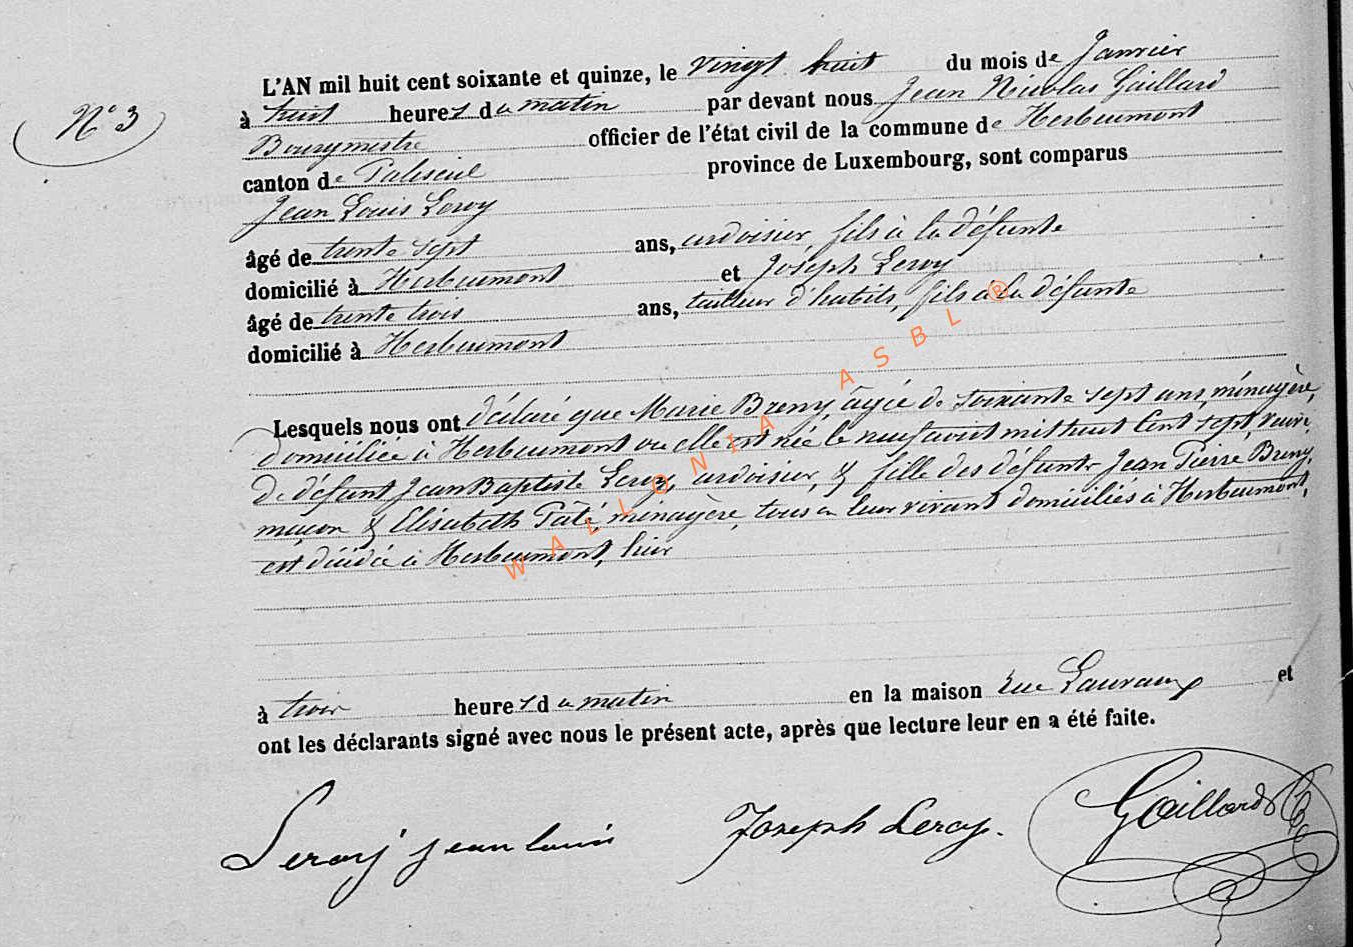 N° 3
L'AN mil huit cent soixante et quinze, le vingt huit du mois de Janvier
à huit heures du matin par devant nous Jean Nicolas Gaillard
Bourgmestre officier de l'état civil de la commune de Herbeumont
canton de Paliseul province de Luxembourg, sont comparus
Jean Louis Leroy
âgé de trente sept ans, ardoisier, fils à la défunte
domicilié à Herbeumont et Joseph Leroy
âgé de trente trois ans, tailleur d'habits, fils à la défunte
domicilié à Herbeumont
Lesquels nous ont déclaré que Marie Breny, âgée de soixante sept ans, ménagère,
domiciliée à Herbeumont où elle est née le neuf août mil huit cent sept, veuve,
de défunt Jean Baptiste Leroy, ardoisier, & fille des défunts Jean Pierre Breny,
maçon & Elisabeth Paté ménagère, tous en leur vivant domiciliés à Herbeumont,
est décédée à Herbeumont, hier
à trois heures du matin en la maison rue Lauvaux et
ont les déclarants signé avec nous le présent acte, après que lecture leur en a été faite.
Leroy jean louis Joseph Leroy. Gaillard
WALLONIA ASBL ®